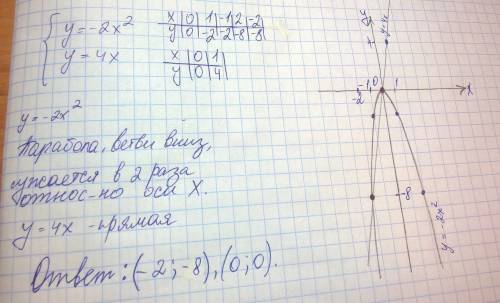 y=-2x²
x | 0 | 1 | -1 | 2 | -2
y | 0 | -2 | -2 | -8 | -8
y=4x
x | 0 | 1
y | 0 | 4
y=-2x²
Парабола, ветви вниз,
сужается в 2 раза
относ-но оси X.
y=4x - прямая
Ответ: (-2;-8), (0;0).
y=4x
-2 -1 0 1 X
-8
y=-2x²